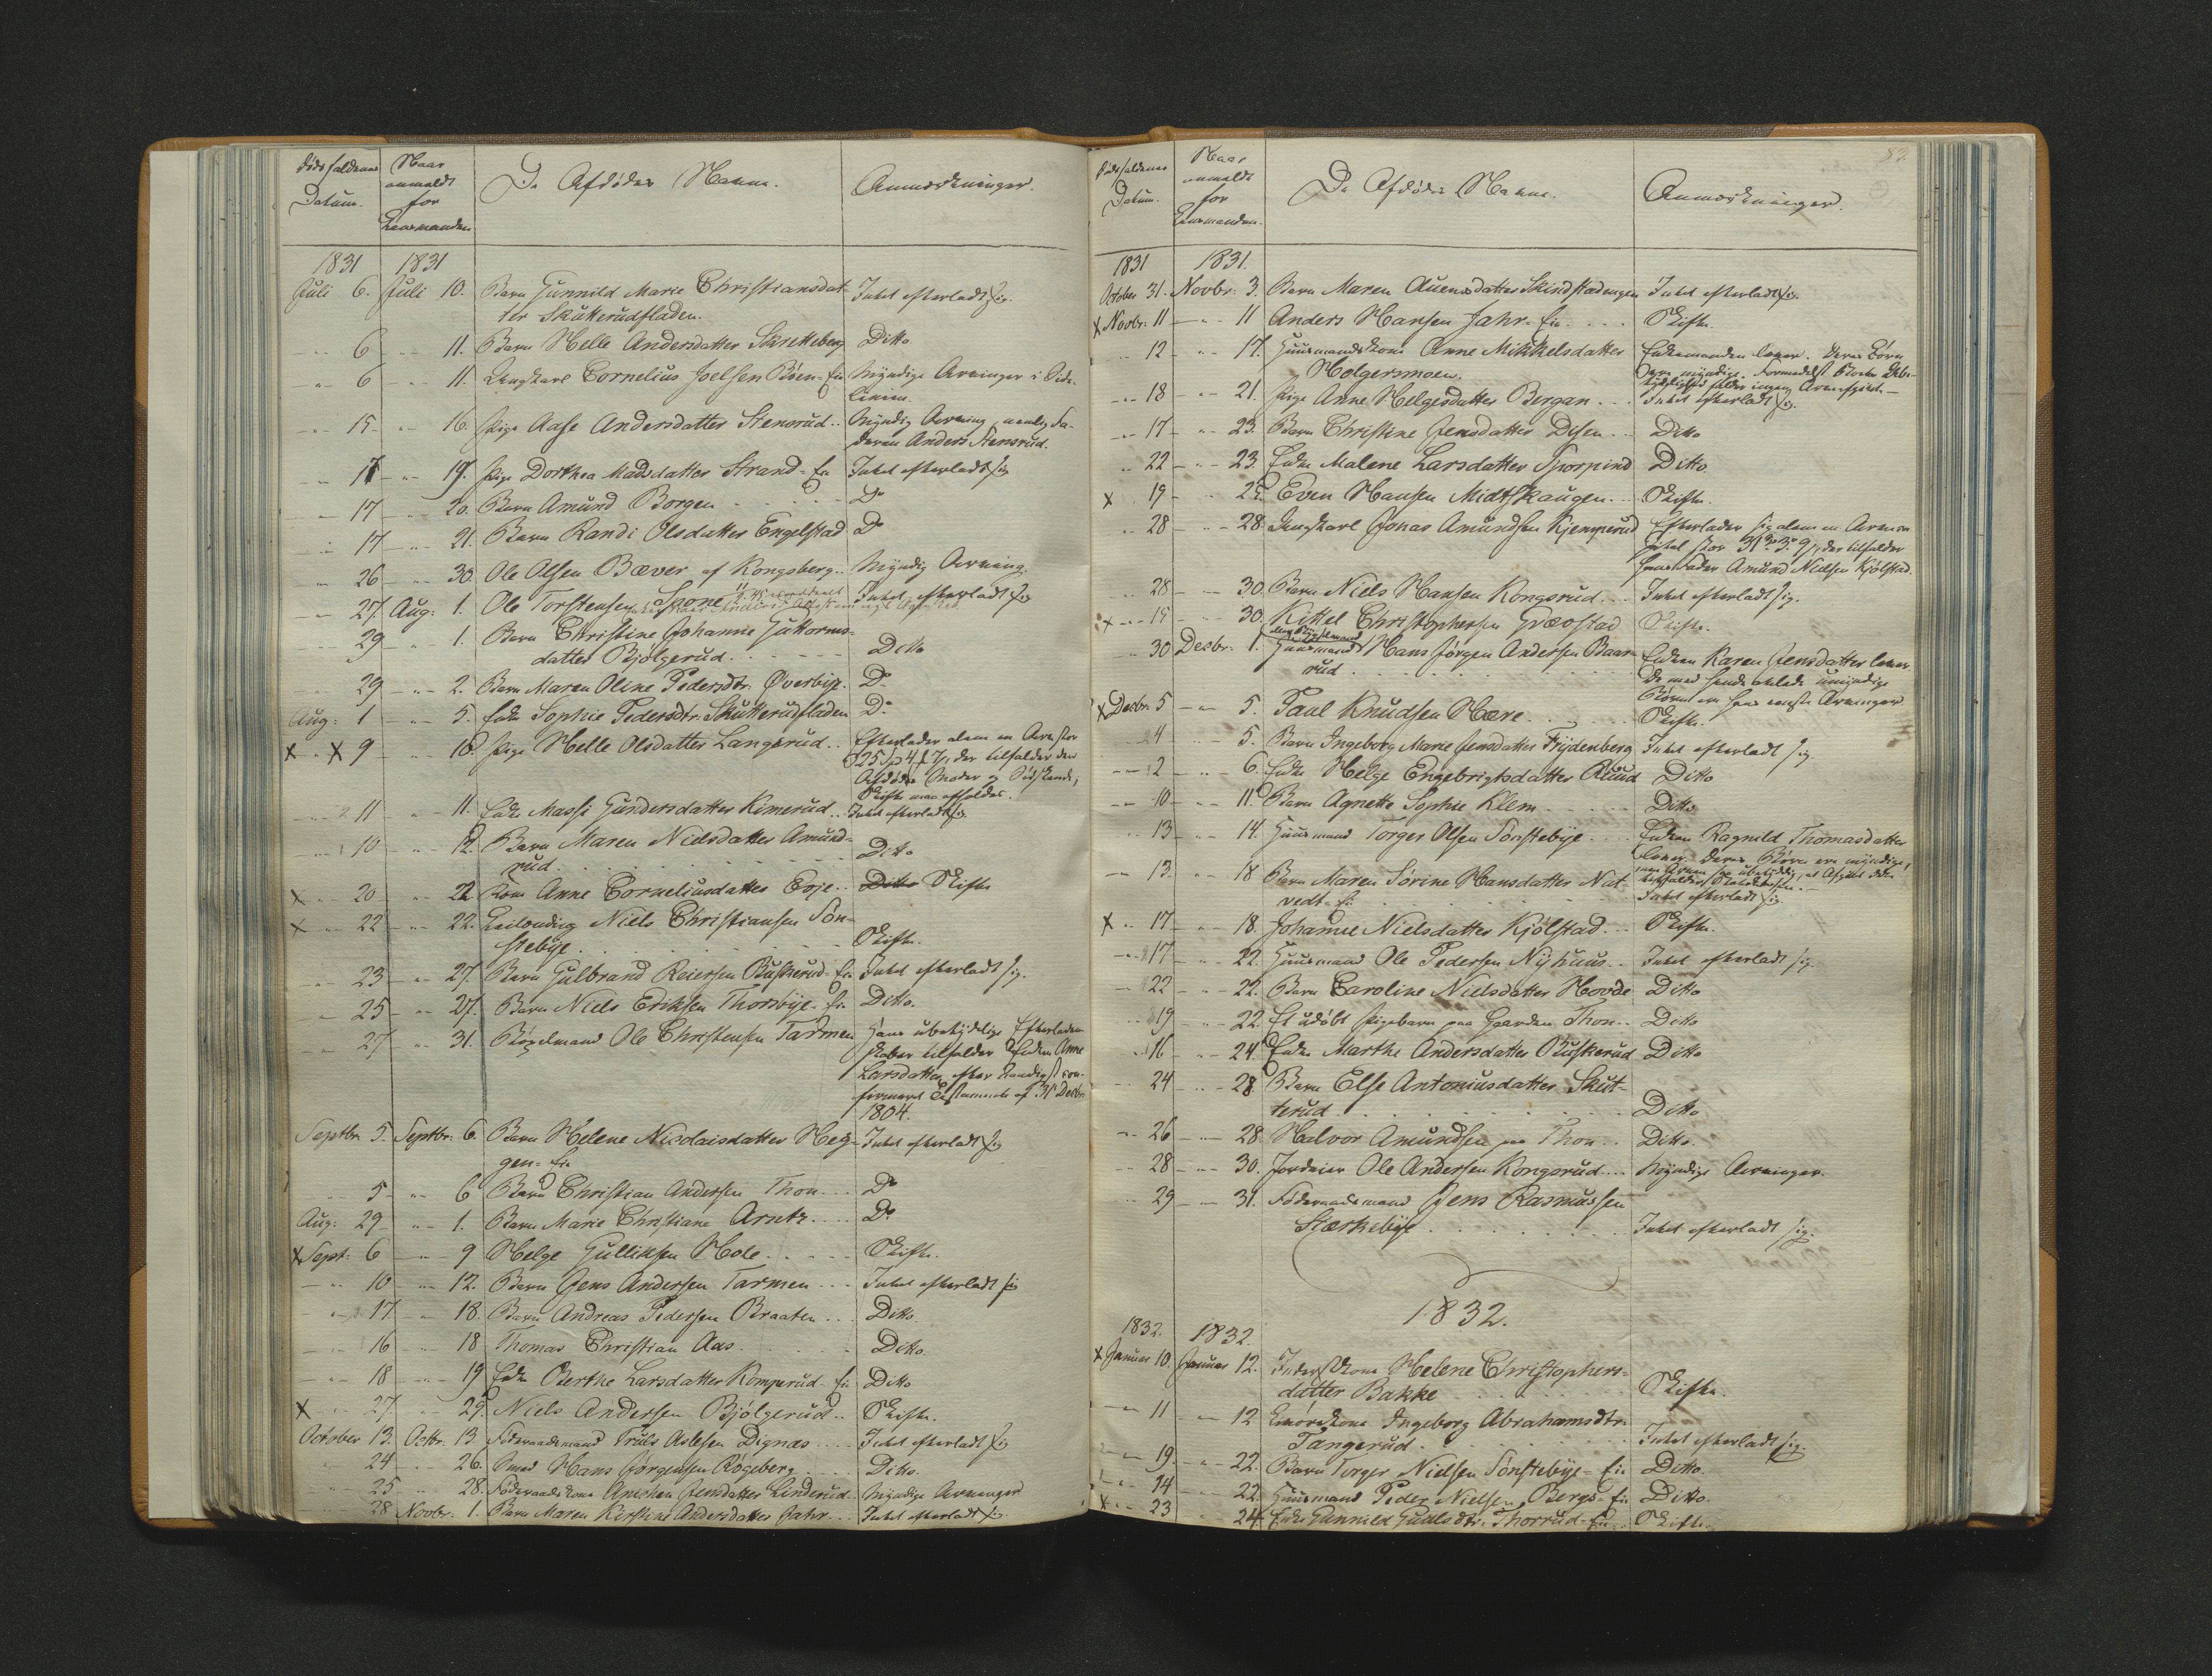 Dødsfaldenes Datum.
Naar anmeldt for Lensmanden
De Afdødes Navne.
Anmærkninger.
1831 1831
Juli 6. Juli 10. Barn Gunnild Marie Christiansdat- Intet efterladt sig.
ter Skutterudfladen.
" 6 " 11. Barn Helle Andersdatter Skretteberg Ditto
" 6 " 11. Ungkarl Cornelius Joelsen Böen-Eie Myndige Arvinger i Side-
linien.
" 15 " 16. Pige Aase Andersdatter Stensrud.. Myndig Arving, nemlig Fa-
deren Anders Stensrud.
" 17 " 19. Pige Dorthea Madsdatter Strand-Eie Intet efterladt sig
" 17 " 20. Barn Amund Borgen D°
" 17 " 21. Barn Randi Olsdatter Engelstad D°
" 26 " 30. Ole Olsen Bæver af Kongsberg.. Myndig Arving.
" 27 Aug: 1. Ole Torstensen Spone Intet efterladt sig
" 29 " 1. Barn Christine Johanne Guttorms-
datter Bjölgerud. Ditto
" 29 " 2. Barn Maren Oline Pedersdtr. Øverbye. D°
Aug: 1 " 5. Enke Sophie Pedersdtr. Skutterudfladen D°
X " X 9 " 10. Pige Helle Olsdatter Langerud.. Efterlader alene en Arv stor
25 4 7, der tilfalder den
Afdødes Moder og Sødskende,
Skifte maa afholdes.
" 11 " 11. Enke Massi Gundersdatter Kimerud.. Intet efterladt sig
" 10 " 12. Barn Maren Nielsdatter Amund-
rud. Ditto
X " 20 " 22 Kone Anne Corneliusdatter Evje.. Ditto Skifte
X " 22 " 22. Leilending Niels Christiansen Søn-
stebye. Skifte.
" 23 " 27. Barn Gulbrand Reiersen Buskerud-Eie Intet efterladt sig.
" 25 " 27. Barn Niels Eriksen Thorsbye-Eie Ditto.
" 27 " 31. Bøxelmand Ole Christensen Tarmen Hans ubetydelige Efterladen-
skaber tilfalder Enken Anne
Larsdatter, efter con-
firmeret Testamente af 31 Decbr.
1804.
Septbr. 5. Septbr. 6. Barn Helene Nicolaisdatter Heg- Intet efterladt sig
gen-Eie
" 5 " 6 Barn Christian Andersen Thon... D°
Aug: 29 " 1. Barn Marie Christiane Arntz.... D°
X Sept: 6 " 9 Helge Gulliksen Hole. Skifte.
" 10 " 12. Barn Jens Andersen Tarmen... Intet efterladt sig
" 17 " 18. Barn Andreas Pedersen Braaten... Ditto
" 16 " 18 Thomas Christian Aas. Ditto.
" 18 " 19 Enke Berthe Larsdatter Komperud-Eie Ditto
X " 27 " 29 Niels Andersen Bjölgerud.. Skifte.
October 13. Octbr. 13 Føderaadsmand Truls Aslesen Dignæs.... Intet efterladt sig
" 24 " 26. Smed Hans Jørgensen Røgeberg.... Ditto.
" 25 " 28. Føderaadskone Anichen Jensdatter Linderud.. Myndige Arvinger
" 28 Novbr. 1. Barn Maren Kirstine Andersdatter Jahr... Intet efterladt sig
83.
Dødsfaldenes Datum.
Naar anmeldt for Lensmanden.
De Afdødes Navne.
Anmærkninger.
1831 1831.
October 31. Novbr. 3. Barn Maren Auensdatter Skindstadengen Intet efterladt sig.
X Novbr. 11 " 11 Anders Hansen Jahr-Eie.... Skifte.
" 12 " 17. Huusmandskone Anne Mikkelsdatter Enkemanden lever. Deres Børn
Holgersmoen. ere myndige. Formedelst Boets Ube-
tydelighed falder ingen Arveafgivt.
" 18 " 21. Pige Anne Helgesdatter Bergan... Intet efterladt sig.
" 17 " 23. Barn Christine Jensdatter Disen... Ditto
" 22 " 23. Enke Malene Larsdatter Sporpind Ditto
X 19 " 25. Even Hansen Midtskaugen... Skifte.
" 28 " 28. Ungkarl Jonas Amundsen Kjemperud Efterlader sig alene en Arveca-
pital stor 31 3 9, der tilfalder
hans Fader Amund Nielsen Kjölstad.
" 28 " 30. Barn Niels Hansen Kongsrud... Intet efterladt sig.
X " 15 30. Kittel Christophersen Græostad Skifte.
" 30 Decbr. 1. Huusmand Hans Jørgen Andersen Baase- Enken Karen Jensdatter lever
rud. De med hende avlede umyndige
Børn ere hans eneste Arvinger
X Decbr. 5 " 5. Paul Knudsen Hære. Skifte.
" 4 " 5. Barn Ingeborg Marie Jensdatter Frydenberg Intet efterladt sig.
" 2 " 6. Enke Helge Engebrigtsdatter Ruud Ditto
" 10 " 11. Barn Agnethe Sophie Klem. Ditto
" 13 " 14. Huusmand Torger Olsen Sønstebye... Enken Ragnild Thomasdatter
lever. Deres Børn ere myndige,
" 13. " 18 Barn Maren Sørine Hansdatter Nat-
vedt-Eie Intet efterladt sig.
X " 17 " 18. Johanne Nielsdatter Kjölstad... Skifte.
" 17 " 22. Huusmand Ole Pedersen Nyhuus.. Intet efterladt sig.
" 22 " 22. Barn Caroline Nielsdatter Hovde Ditto
" 19 " 22. Et udöbt Pigebarn paa Gaarden Thon.. Ditto
" 16 " 24. Enke Marthe Andersdatter Buskerud Ditto
" 24 " 28 Barn Else Antoniusdatter Skut-
terud. Ditto
" 26 " 28 Halvor Amundsen paa Thon... Ditto.
" 28 " 30. Jordeier Ole Andersen Kongsrud... Myndige Arvinger.
" 29 " 31. Føderaadsmand Jens Rasmussen
Stærkebye. Intet efterladt sig.
1832.
1832. 1832
X Januar 10. Januar 12. Inderstkone Helene Christophers-
datter Bakke Skifte.
" 11 " 12 Ingeborg Abrahamsdtr.
Tangerud. Intet efterladt sig.
" 19 " 22. Barn Torger Nielsen Sønstebye-Eie Ditto.
" 14 " 22. Huusmand Peder Nielsen Bergs-Eie Ditto.
X " 23 " 24. Enke Gunnild Gudlsdtr. Thorrud-Eie.. Skifte